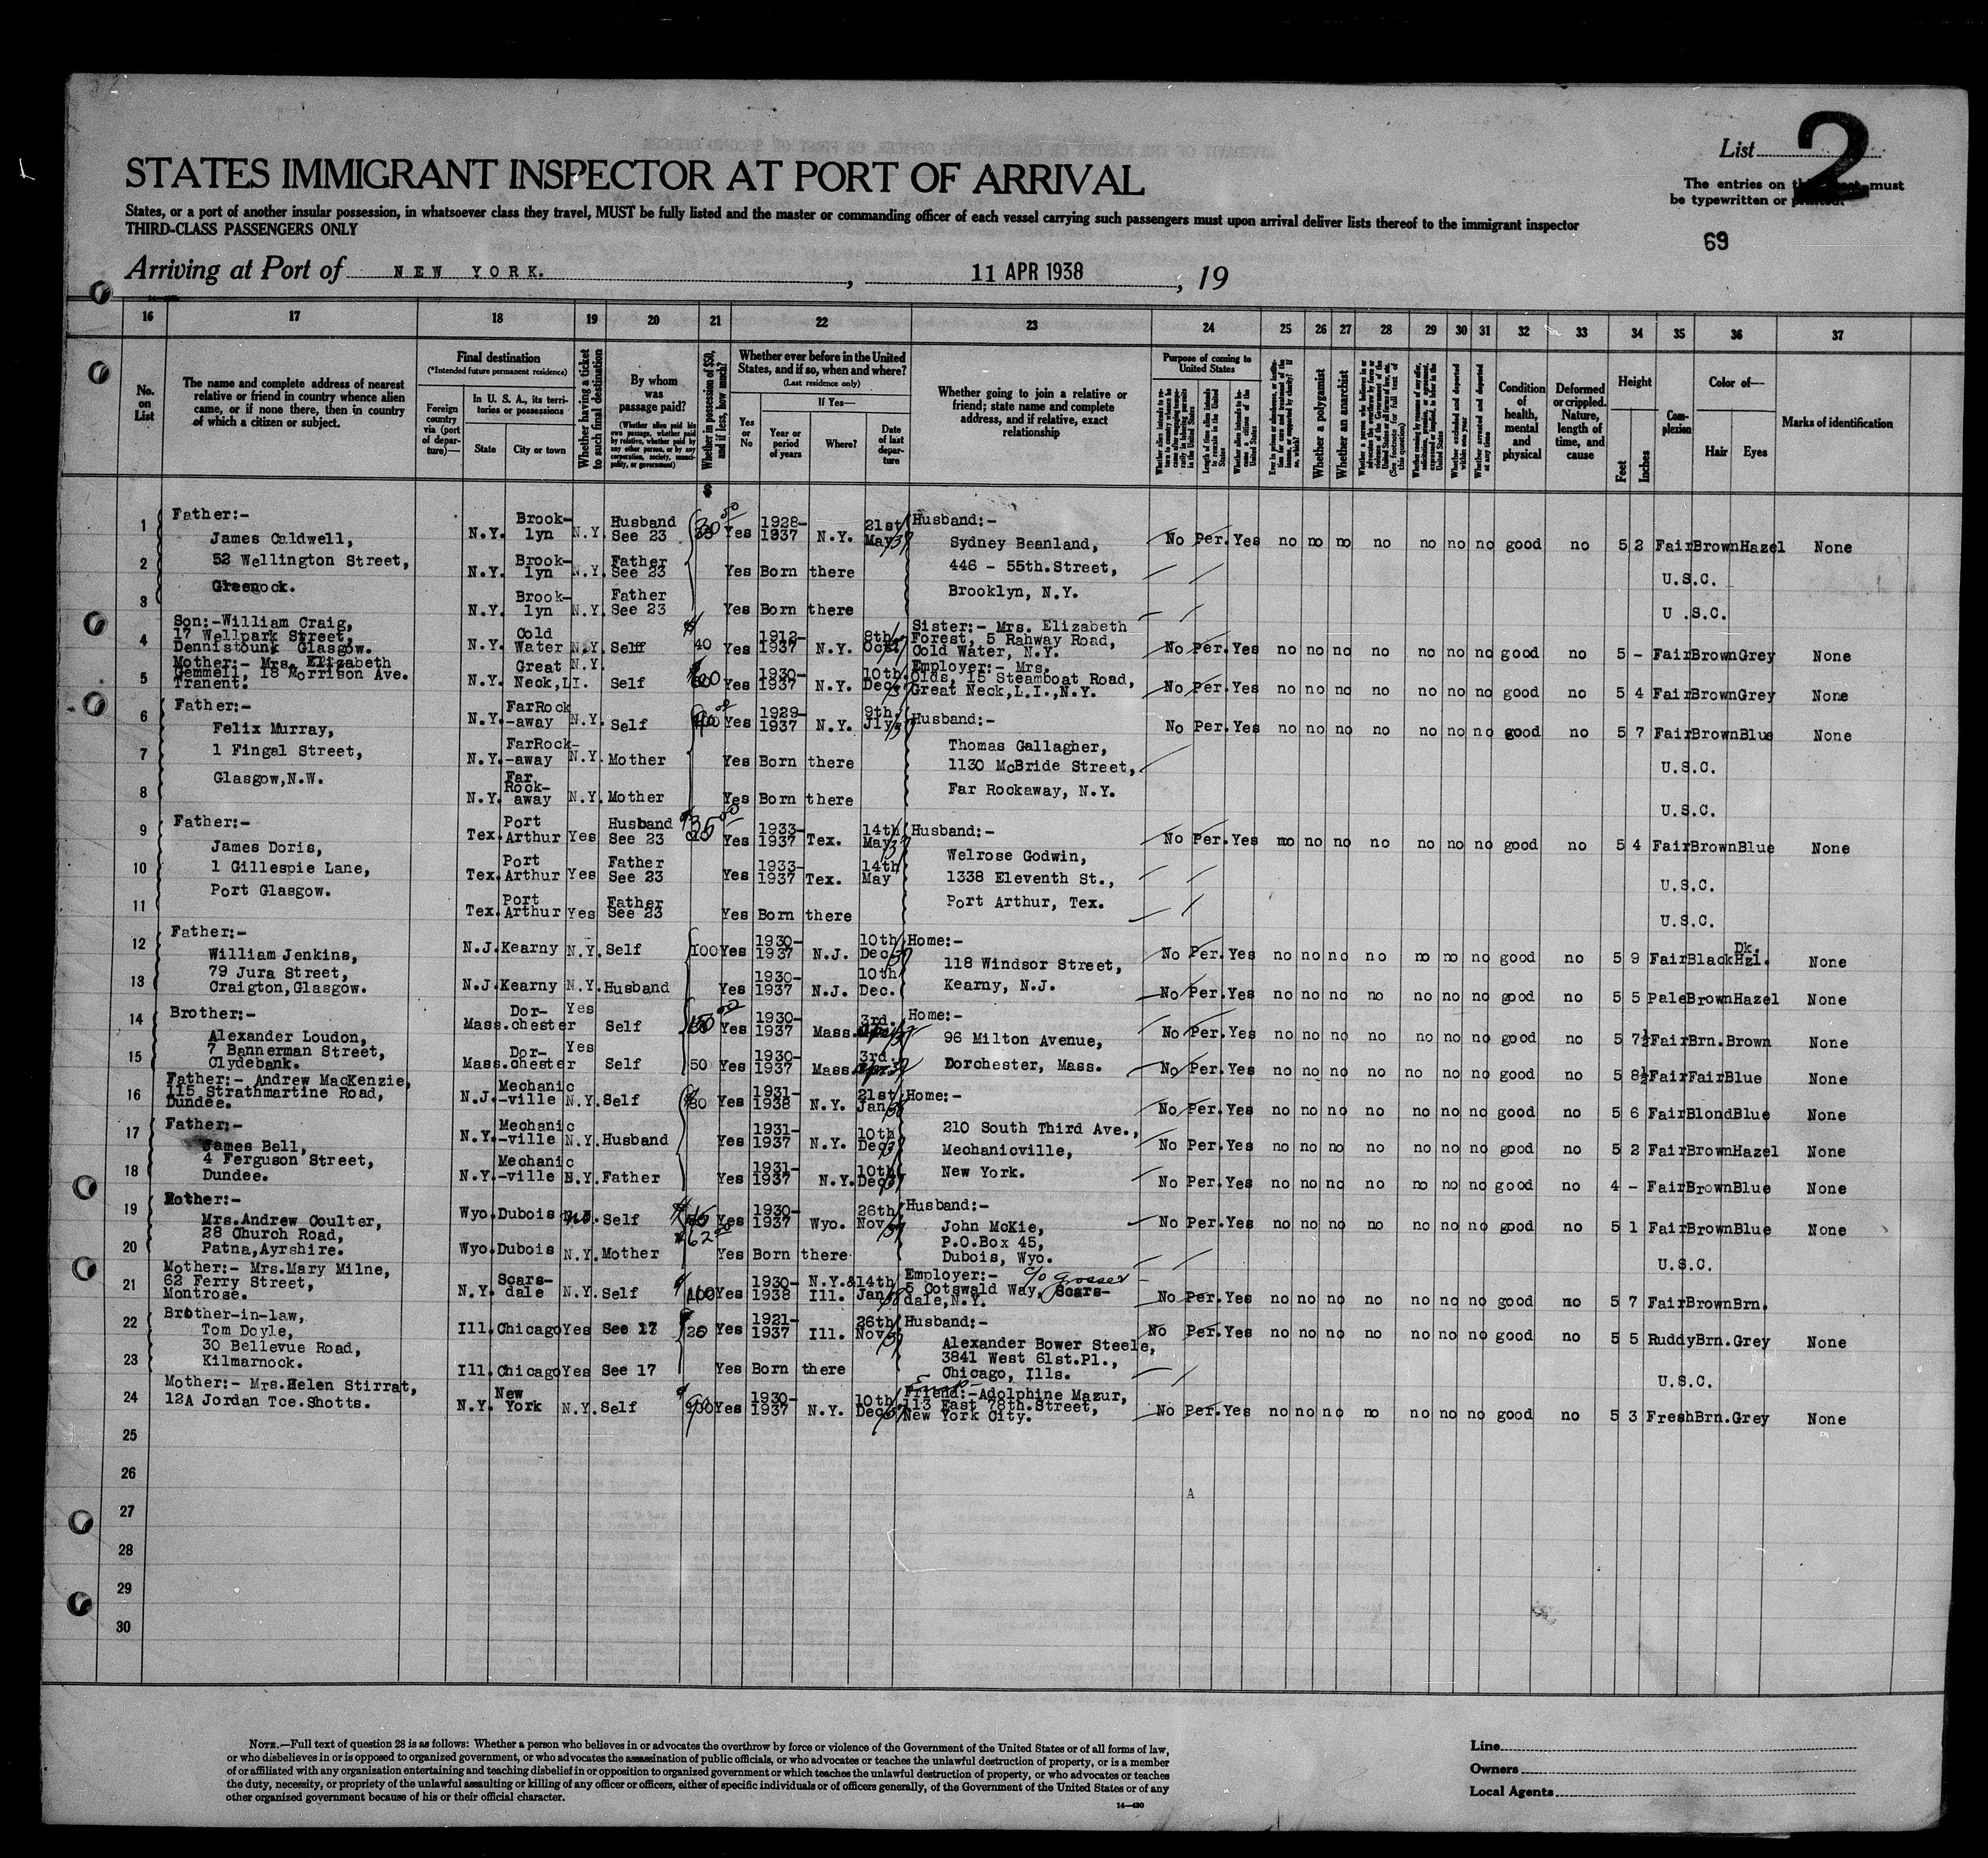 List 2
STATES IMMIGRANT INSPECTOR AT PORT OF ARRIVAL
The entries on must
be typewritten or printed.
States, or a port of another insular possession, in whatsoever class they travel, MUST be fully listed and the master or commanding officer of each vessel carrying such passengers must upon arrival deliver lists thereof to the immigrant inspector
THIRD-CLASS PASSENGERS ONLY
69
Arriving at Port of NEW YORK. , 11 APR 1938 , 19
16 17 18 19 20 21 22 23 24 25 26 27 28 29 30 31 32 33 34 35 36 37
No. on List
The name and complete address of nearest relative or friend in country whence alien came, or if none there, then in country of which a citizen or subject.
Final destination
(*Intended future permanent residence)
Foreign country via (port of departure)—
In U. S. A., its territories or possessions
State
City or town
Whether having a ticket to such final destination
By whom was passage paid?
(Whether alien paid his own passage, whether paid by relative, whether paid by any other person, or by any corporation, society, municipality, or government)
Whether in possession of $50, and if less, how much?
Whether ever before in the United States, and if so, when and where?
(Last residence only)
Yes or No
If Yes—
Year or period of years
Where?
Date of last departure
Whether going to join a relative or friend; state name and complete address, and if relative, exact relationship
Purpose of coming to United States
Whether a polygamist
Whether an anarchist
Whether excluded and deported within one year
Whether arrested and deported at any time
Condition of health, mental and physical
Deformed or crippled. Nature, length of time, and cause
Height
Feet
Inches
Complexion
Color of—
Hair
Eyes
Marks of identification
1 Father:- James Caldwell, N.Y. Brook-lyn N.Y. Husband See 23 Yes 1928-1937 N.Y. 21st May Husband:- Sydney Beanland, No Per. Yes no no no no no no no good no 5 2 Fair Brown Hazel None
2 52 Wellington Street, N.Y. Brook-lyn N.Y. Father See 23 Yes Born there 446 - 55th.Street, U.S.C.
3 Greenock. N.Y. Brook-lyn N.Y. Father See 23 Yes Born there Brooklyn, N.Y. U .S.C.
4 Son:-William Craig, 17 Wellpark Street, Dennistoun, Glasgow. N.Y. Cold Water N.Y. Self 40 Yes 1912-1937 N.Y. 8th Oct. Sister:- Mrs. Elizabeth Forest, 5 Rahway Road, Cold Water, N.Y. No Per. Yes no no no no no no no good no 5 - Fair Brown Grey None
5 Mother:- Mrs. Elizabeth Gemmell, 18 Morrison Ave. Tranent. N.Y. Great Neck, LI. N.Y. Self Yes 1930-1937 N.Y. 10th. Dec. Employer:- Mrs. Olds, 15 Steamboat Road, Great Neck,L.I.,N.Y. No Per. Yes no no no no no no no good no 5 4 Fair Brown Grey None
6 Father:- Felix Murray, N.Y. FarRock-away N.Y. Self Yes 1929-1937 N.Y. 9th. Jly Husband:- No Per. Yes no no no no no no no good no 5 7 Fair Brown Blue None
7 1 Fingal Street, N.Y. FarRock-away N.Y. Mother Yes Born there Thomas Gallagher, 1130 McBride Street, U.S.C.
8 Glasgow,N.W. N.Y. Far Rock-away N.Y. Mother Yes Born there Far Rockaway, N.Y. U.S.C.
9 Father:- James Doris, Tex. Port Arthur Yes Husband See 23 Yes 1933-1937 Tex. 14th May Husband:- Welrose Godwin, No Per. Yes no no no no no no no good no 5 4 Fair Brown Blue None
10 1 Gillespie Lane, Tex. Port Arthur Yes Father See 23 Yes 1933-1937 Tex. 14th May 1338 Eleventh St., U.S.C.
11 Port Glasgow. Tex. Port Arthur Yes Father See 23 Yes Born there Port Arthur, Tex. U.S.C.
12 Father:- William Jenkins, N.J. Kearny N.Y. Self 100 Yes 1930-1937 N.J. 10th Dec. Home:- 118 Windsor Street, No Per. Yes no no no no no no no good no 5 9 Fair Black Dk. Hzl. None
13 79 Jura Street, Craigton,Glasgow. N.J. Kearny N.Y. Husband Yes 1930-1937 N.J. 10th Dec. Kearny, N.J. No Per. Yes no no no no no no no good no 5 5 Pale Brown Hazel None
14 Brother:- Alexander Loudon, Mass. Dor-chester Yes Self Yes 1930-1937 Mass. 3rd. Home:- 96 Milton Avenue, No Per. Yes no no no no no no no good no 5 7½ Fair Brn. Brown None
15 7 Bannerman Street, Clydebank. Mass. Dor-chester Yes Self 50 Yes 1930-1937 Mass. 3rd. Dorchester, Mass. No Per. Yes no no no no no no no good no 5 8½ Fair Fair Blue None
16 Father:- Andrew MacKenzie, 115 Strathmartine Road, Dundee. N.J. Mechanic-ville N.Y. Self Yes 1931-1938 N.Y. 21st Jan. Home:- No Per. Yes no no no no no no no good no 5 6 Fair Blond Blue None
17 Father:- James Bell, N.Y. Mechanic-ville N.Y. Husband Yes 1931-1937 N.Y. 10th Dec. 210 South Third Ave., Mechanicville, No Per. Yes no no no no no no no good no 5 2 Fair Brown Hazel None
18 4 Ferguson Street, Dundee. N.Y. Mechanic-ville N.Y. Father Yes 1931-1937 N.Y. 10th Dec. New York. No Per. Yes no no no no no no no good no 4 - Fair Brown Blue None
19 Mother:- Mrs.Andrew Coulter, Wyo. Dubois Self Yes 1930-1937 Wyo. 26th Nov. Husband:- John McKie, No Per. Yes no no no no no no no good no 5 1 Fair Brown Blue None
20 28 Church Road, Patna,Ayrshire. Wyo. Dubois N.Y. Mother Yes Born there P.O.Box 45, Dubois, Wyo. U.S.C.
21 Mother:- Mrs.Mary Milne, 62 Ferry Street, Montrose. N.Y. Scars-dale N.Y. Self 100 Yes 1930-1938 N.Y.& Ill. 14th Jan. Employer:- c/o Grosser 5 Cotswald Way, Scars-dale,N.Y. No Per. Yes no no no no no no no good no 5 7 Fair Brown Brn.
22 Brother-in-law, Tom Doyle, Ill. Chicago Yes See 17 Yes 1921-1937 Ill. 26th Nov. Husband:- Alexander Bower Steele, No Per. Yes no no no no no no no good no 5 5 Ruddy Brn. Grey None
23 30 Bellevue Road, Kilmarnock. Ill. Chicago Yes See 17 Yes Born there 3841 West 61st.Pl., Chicago, Ills. U.S.C.
24 Mother:- Mrs.Helen Stirrat, 12A Jordan Tce.Shotts. N.Y. New York N.Y. Self Yes 1930-1937 N.Y. 10th Dec. Friend:-Adolphine Mazur, 113 East 78th.Street, New York City. No Per. Yes no no no no no no no good no 5 3 Fresh Brn. Grey None
25
26
27 A
28
29
30
NOTE.—Full text of question 28 is as follows: Whether a person who believes in or advocates the overthrow by force or violence of the Government of the United States or of all forms of law,
or who disbelieves in or is opposed to organized government, or who advocates the assassination of public officials, or who advocates or teaches the unlawful destruction of property, or is a member
of or affiliated with any organization entertaining and teaching disbelief in or opposition to organized government or which teaches the unlawful destruction of property, or who advocates or teaches
the duty, necessity, or propriety of the unlawful assaulting or killing of any officer or officers, either of specific individuals or of officers generally, of the Government of the United States or of any
other organized government because of his or their official character.
14—430
Line
Owners
Local Agents